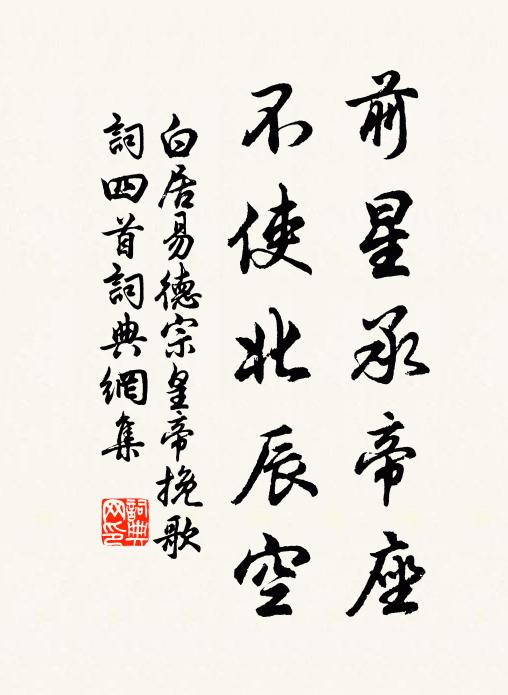 前星承帝座
不使北辰空
白居易德宗皇帝挽歌
詞四首詞典網集
詞典网印